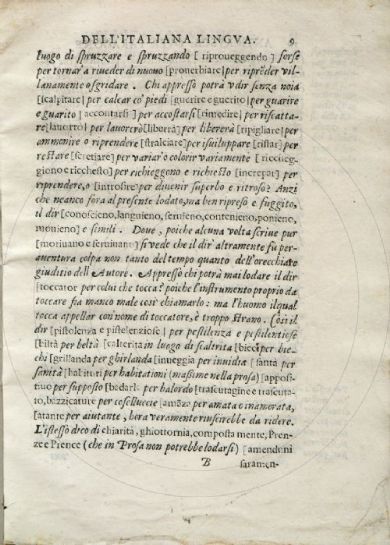 DELL'ITALIANA LINGVA. 9
luogo di spruzzare e spruzzando [riproueggendo] forse
per tornar'a riueder di nuouo [prouerbiare] per riprēder vil-
lanamente o sgridare. Chi appresso potrà vdir senza noia
[scalpitare] per calcar co' piedi [guerire e guerito] per guarire
e guarito [accontarsi] per accostarsi [rimedire] per riscatta-
re [lauorrò] per lauorerò [liberrà] per libererà [ripigliare] per
ammonire o riprendere [stralciare] per isuiluppare [ristar] per
restare [screziare] per variar'o colorir variamente [ricchieg-
giono e richesto] per richieggono e richiesto [increpar] per
riprendere, o [introsire] per diuenir superbo e ritroso? Anzi
che neanco fora al presente lodato, ma ben ripreso e fuggito,
il dir [conoscieno, langueno, temieno, contenieno, ponieno,
monieno] e simili. Doue, poiche alcuna volta scriue pur
[moriuano e seruiuano] si vede che il dir' altramente fù per-
auentura colpa non tanto del tempo quanto dell'orecchia o
giuditio dell' Autore. Appresso chi potrà mai lodare il dir
[toccator per colui che tocca? poiche l'instrumento proprio da
toccare fia manco male così chiamarlo: ma l'huomo il qual
tocca appellar con nome di toccatore, è troppo strano. Così il
dir [pistolenza e pistolenziose] per pestilenza e pestilentiose
[biltà per beltà [calterita in luogo di scaltrita [bieci per bie-
chi [grillanda per ghirlanda [inueggia per inuidia [santà per
sanità [habituri per habitationi (massime nella prosa) [apposi-
tiuo per supposito [badarlo per balordo [trascutagine e trascuta-
to, bazzicature per coselluccie [amāza per amata e inamorata,
[atante per aiutante, hora veramente riuscirebbe da ridere.
L'istesso dico di chiarità, ghiottornia, composta mente, Pren-
ze e Prence (che in Prosa non potrebbe lodarsi) [amenduni
B saramen-